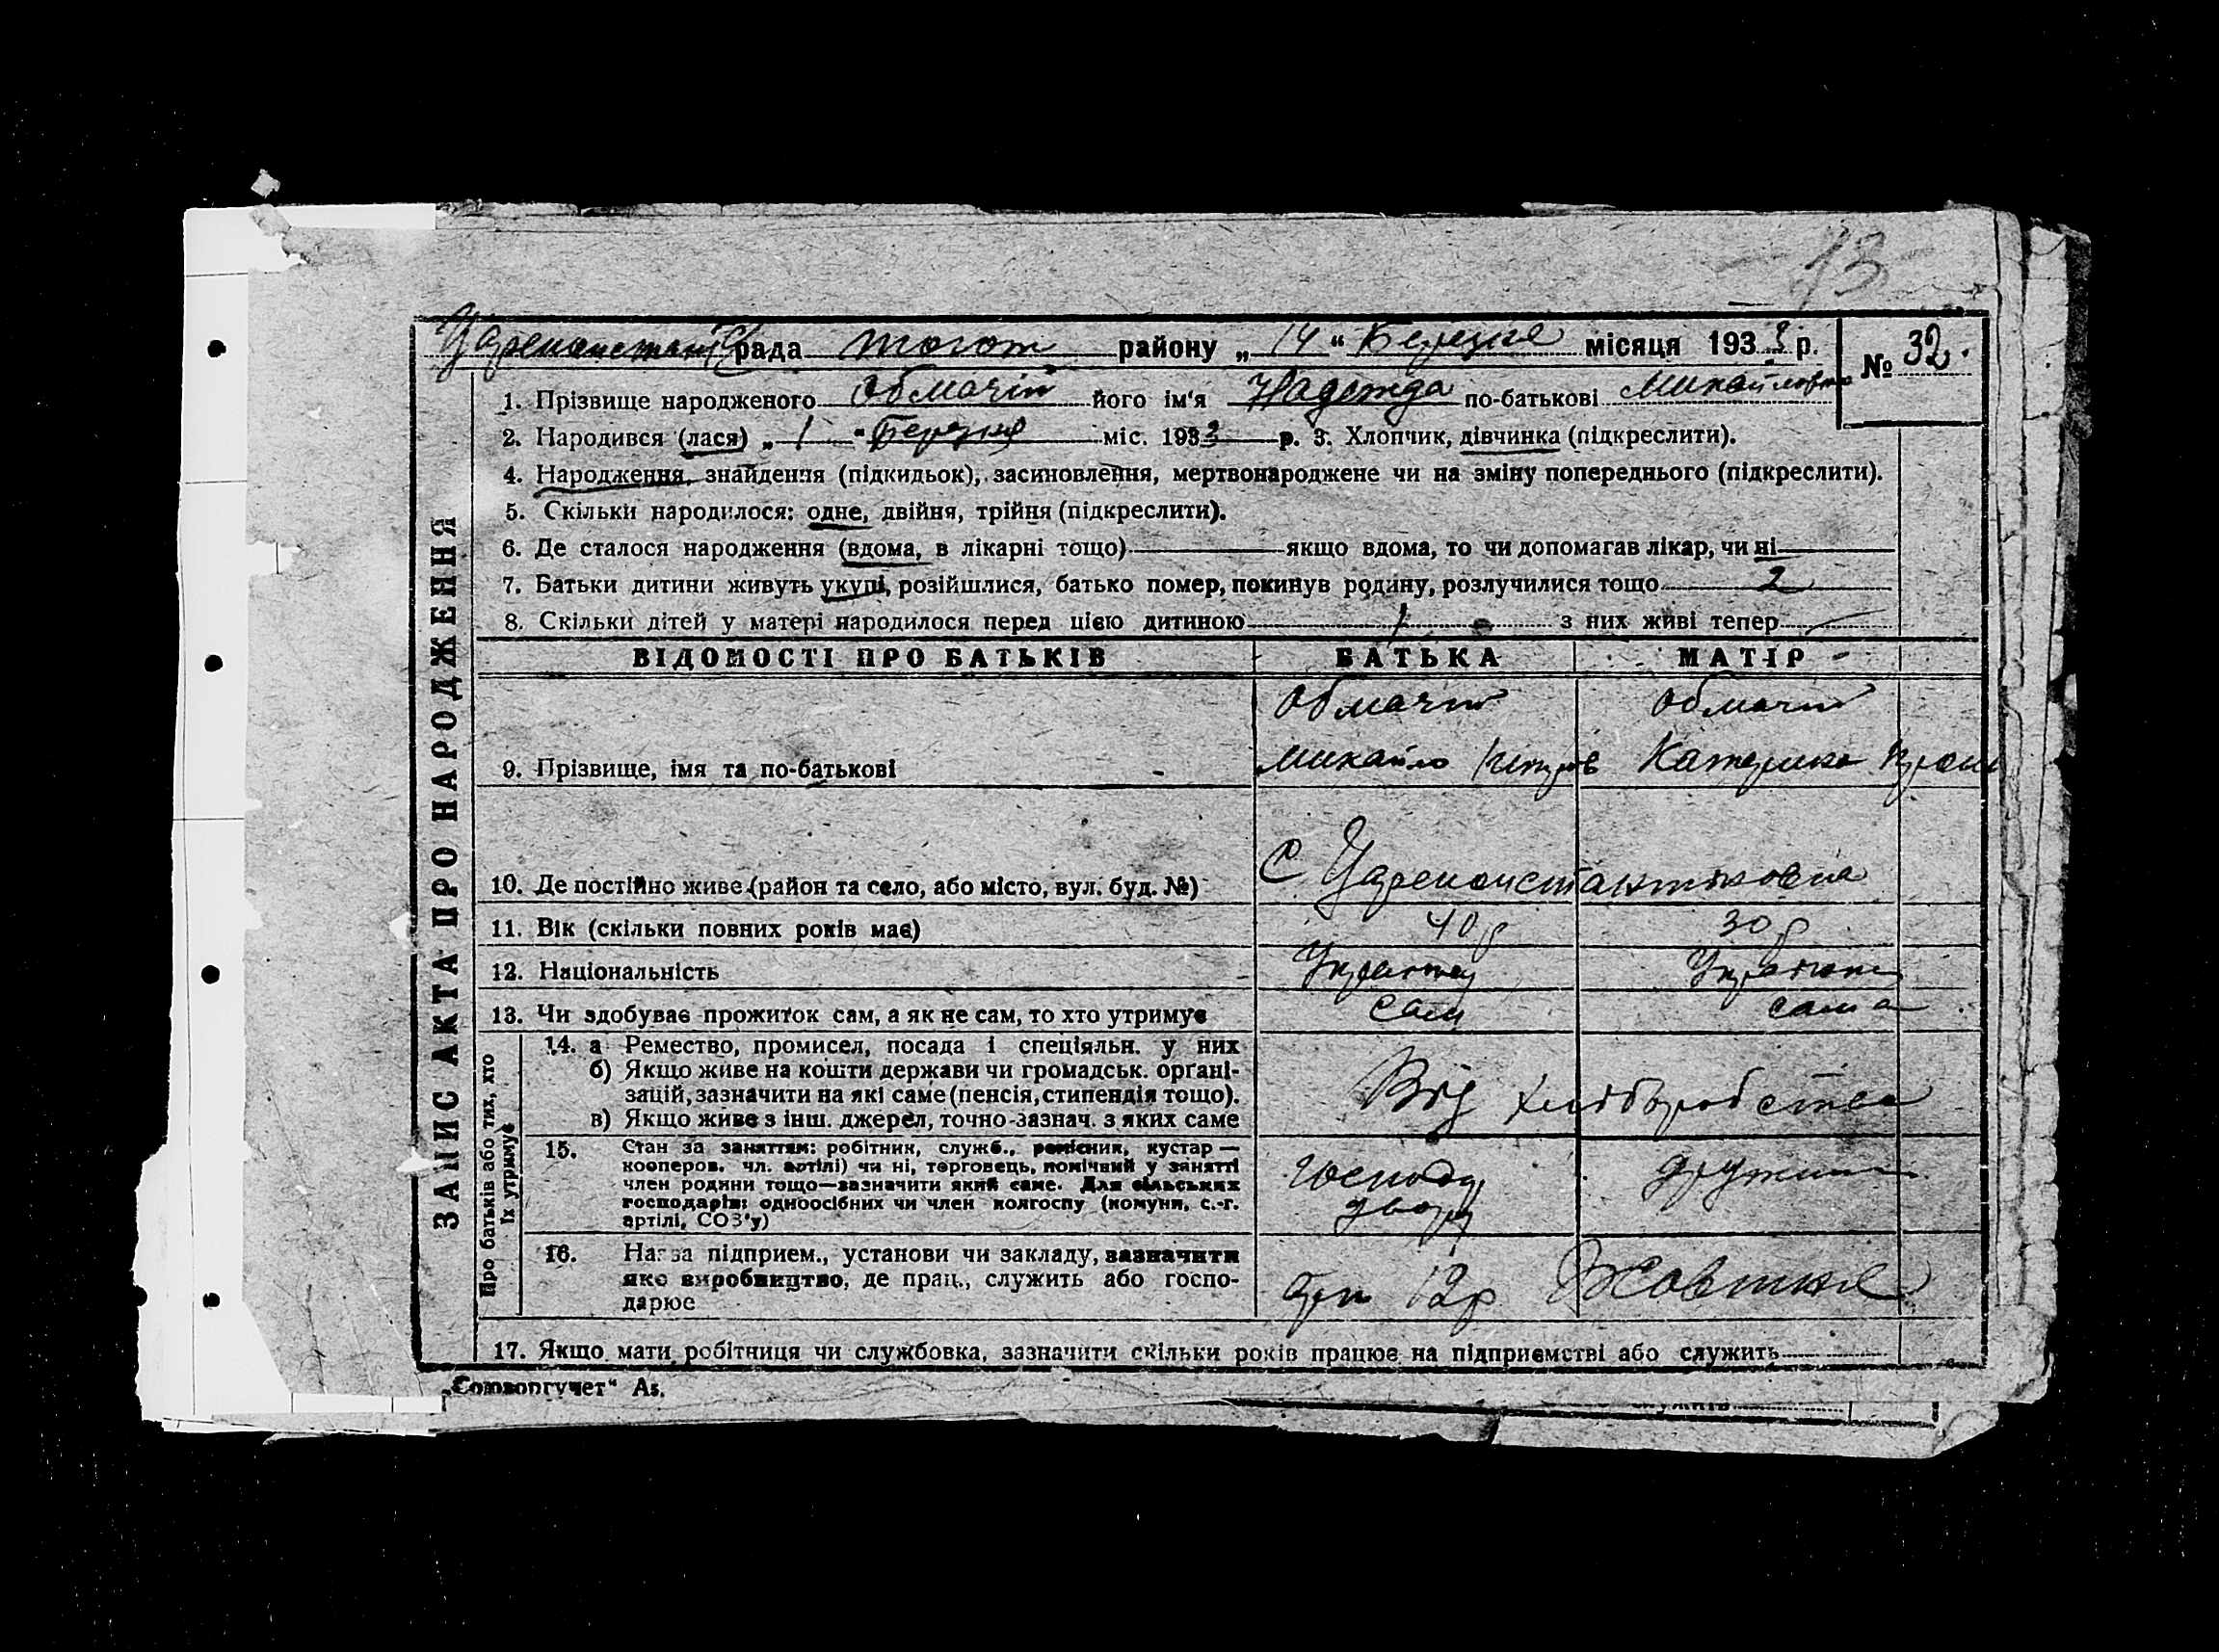 13
Царенконстант с/рада тогож району „ 14 “ Березня місяця 1933 р.
№ 32.
1. Прізвище народженого Обмачій його ім'я Надежда по-батькові Михайловна
2. Народився (лася) „ 1 “ Березня міс. 1933 р. 3. Хлопчик, дівчинка (підкреслити).
4. Народження, знайдення (підкидьок), засиновлення, мертвонароджене чи на зміну попереднього (підкреслити).
5. Скільки народилося: одне, двійня, трійня (підкреслити).
6. Де сталося народження (вдома, в лікарні тощо) якщо вдома, то чи допомагав лікар, чи ні
7. Батьки дитини живуть укупі, розійшлися, батько помер, покинув родину, розлучилися тощо 2
8. Скільки дітей у матері народилося перед цією дитиною 1 з них живі тепер
ЗАПИС АКТА ПРО НАРОДЖЕННЯ
ВІДОМОСТІ ПРО БАТЬКІВ БАТЬКА МАТІР
Обмачій Обмачій
9. Прізвище, імя та по-батькові Михайло Катерина
10. Де постійно живе (район та село, або місто, вул. буд. №) С Цареконстантиновка
11. Вік (скільки повних років має) 40 р 30 р
12. Національність Українец Українка
13. Чи здобуває прожиток сам, а як не сам, то хто утримує сам сама
Про батьків або тих, хто
їх утримує
14. а Ремество, промисел, посада і спеціяльн. у них
б) Якщо живе на кошти держави чи громадськ. органі-
зацій, зазначити на які саме (пенсія, стипендія тощо).
в) Якщо живе з інш. джерел, точно зазнач. з яких саме
Від хліборобства
15. Стан за заняттям: робітник, служб., ремісник, кустар —
кооперов. чл. артілі) чи ні, торговець, помічний у занятті
член родини тощо—зазначити який саме. Для сільських
господарів: одноосібних чи член колгоспу (комуни, с.-г.
артілі, СОЗ'у)
господ двору дружина
16. Назва підприєм., установи чи закладу, зазначити
яке виробництво, де прац., служить або госпо-
дарює
арт 12р Жовтня
17. Якщо мати робітниця чи службовка, зазначити скільки років працює на підприємстві або служить
„Союзоргучет“ Аз.
служить